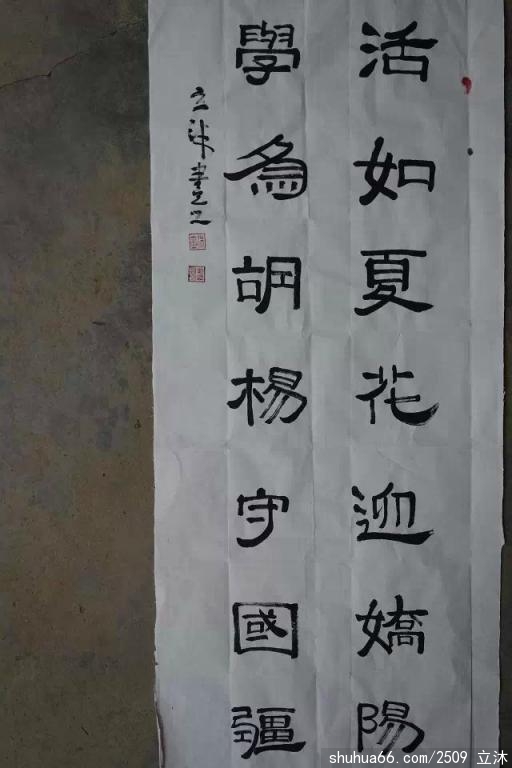 活如夏花迎嬌陽
學為胡楊守國疆
立沐書
shuhua66.com/2509 立沐